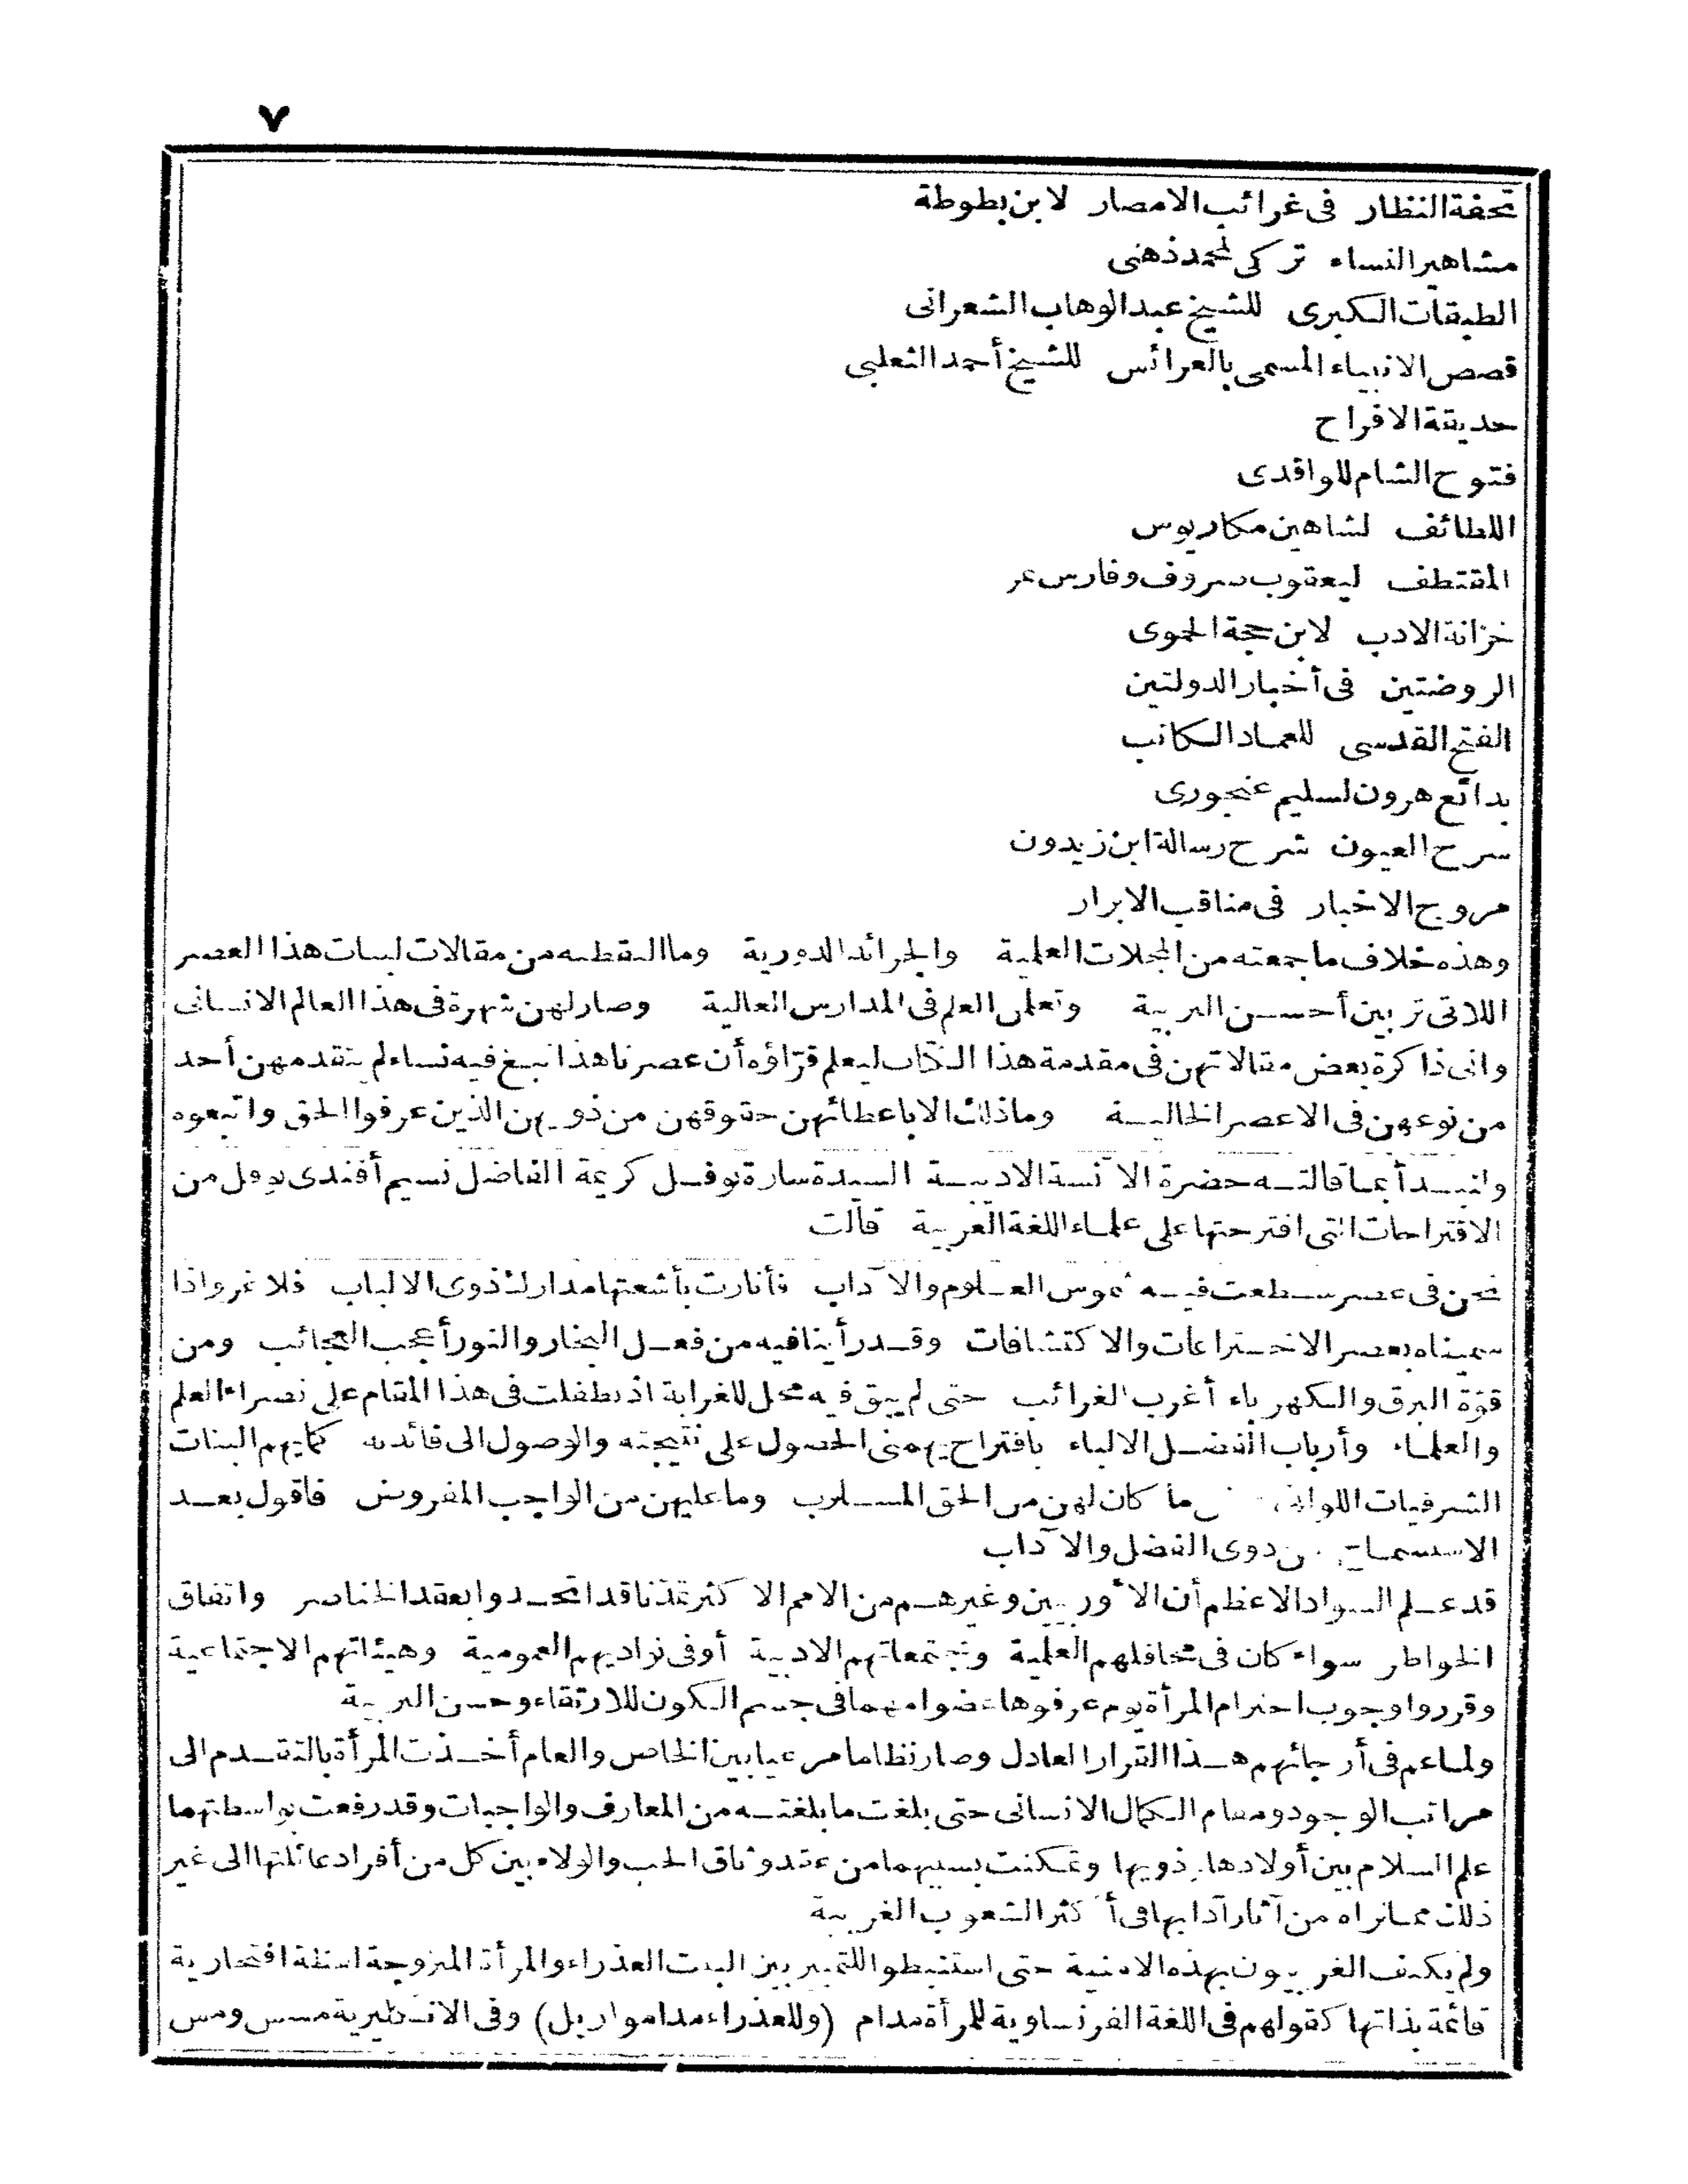 ٧
تحفة النظار فى غرائب الامصار لابن بطوطة
مشاهير النساء تركى لمحمد ذهنى
الطبقات الكبرى للشيخ عبد الوهاب الشعرانى
قصص الانبياء المسمى بالعرائس للشيخ أحمد الثعلبى
حديقة الافراح
فتوح الشام للواقدى
اللطائف لشاهين مكاريوس
المقتطف ليعقوب صروف وفارس نمر
خزانة الادب لابن حجة الحموى
الروضتين فى أخبار الدولتين
الفتح القدسى للعماد الكاتب
بدائع هرون لسليم عنحورى
سرح العيون شرح رسالة ابن زيدون
مروج الاخبار فى مناقب الابرار
وهذه خلاف ما جمعته من المجلات العلمية والجرائد الدورية وما التقطته من مقالات لسات هذا العصر
اللاتى تربين أحسن التربية وتعلمن العلم فى المدارس العالية وصار لهن شهرة فى هذا العالم الانسانى
وانى ذاكرة بعض مقالاتهن فى مقدمة هذا الكتاب ليعلم قرّاؤه أن عصرنا هذا نبغ فيه نساء لم يتقدمهن أحد
من نوعهن فى الاعصر الخالية وما ذلك الا باعطائهن حقوقهن من ذويهن الذين عرفوا الحق واتبعوه
ولنبدأ بما قالته حضرة الآنسة الاديبة السيدة سارة نوفل كريمة الفاضل نسيم أفندى نوفل من
الاقتراحات التى اقترحتها على علماء اللغة العربية قالت
نحن فى عصر سطعت فيه شموس العلوم والآداب فأنارت بأشعتها مدارك ذوى الالباب فلا غرو اذا
سميناه بعصر الاختراعات والاكتشافات وقد رأينا فيه من فعل البخار والنور أعجب العجائب ومن
قوّة البرق والكهرباء أغرب الغرائب حتى لم يبق فيه محل للغرابة اذ تطفلت فى هذا المقام على نصراء العلم
والعلماء وأرباب الفضل الالباء باقتراح يهمنى الحصول على نتيجته والوصول الى فائدته كما يهم البنات
الشرقيات ما كان لهن من الحق المسلوب وما عليهن من الواجب المفروض فاقول بعد
الاستسماح من ذوى الفضل والآداب
قد علم السواد الاعظم أن الأوربيين وغيرهم من الامم الاكثر تمدّنا قد اتحدوا بعقد الخناصر واتفاق
الخواطر سواء كان فى محافلهم العلمية ومجتمعاتهم الادبية أو فى نواديهم العمومية وهيئاتهم الاجتماعية
وقرروا وجوب احترام المرأة يوم عرفوها عضوا مهما فى جسم الكون للارتقاء وحسن التربية
ولما عم فى أرجائهم هذا القرار العادل وصار نظاما مرعيا بين الخاص والعام أخذت المرأة بالتقدم الى
مراتب الوجود ومقام الكمال الانسانى حتى بلغت ما بلغته من المعارف والواجبات وقد رفعت بواسطتهما
علم السلام بين أولادها وذويها وتمكنت بسببهما من عقد وثاق الحب والولاء بين كل من أفراد عائلتها الى غير
ذلك مما نراه من آثار آدابها فى أكثر الشعوب الغربية
ولم يكتف الغربيون بهذه الامنية حتى استنبطوا للتمييز بين البنت العذراء والمرأة المتزوجة لفظة افتخارية
قائمة بذاتها كقولهم فى اللغة الفرنساوية للمرأة مدام (وللعذراء مدامواريل) وفى الانكليزية مسس ومس